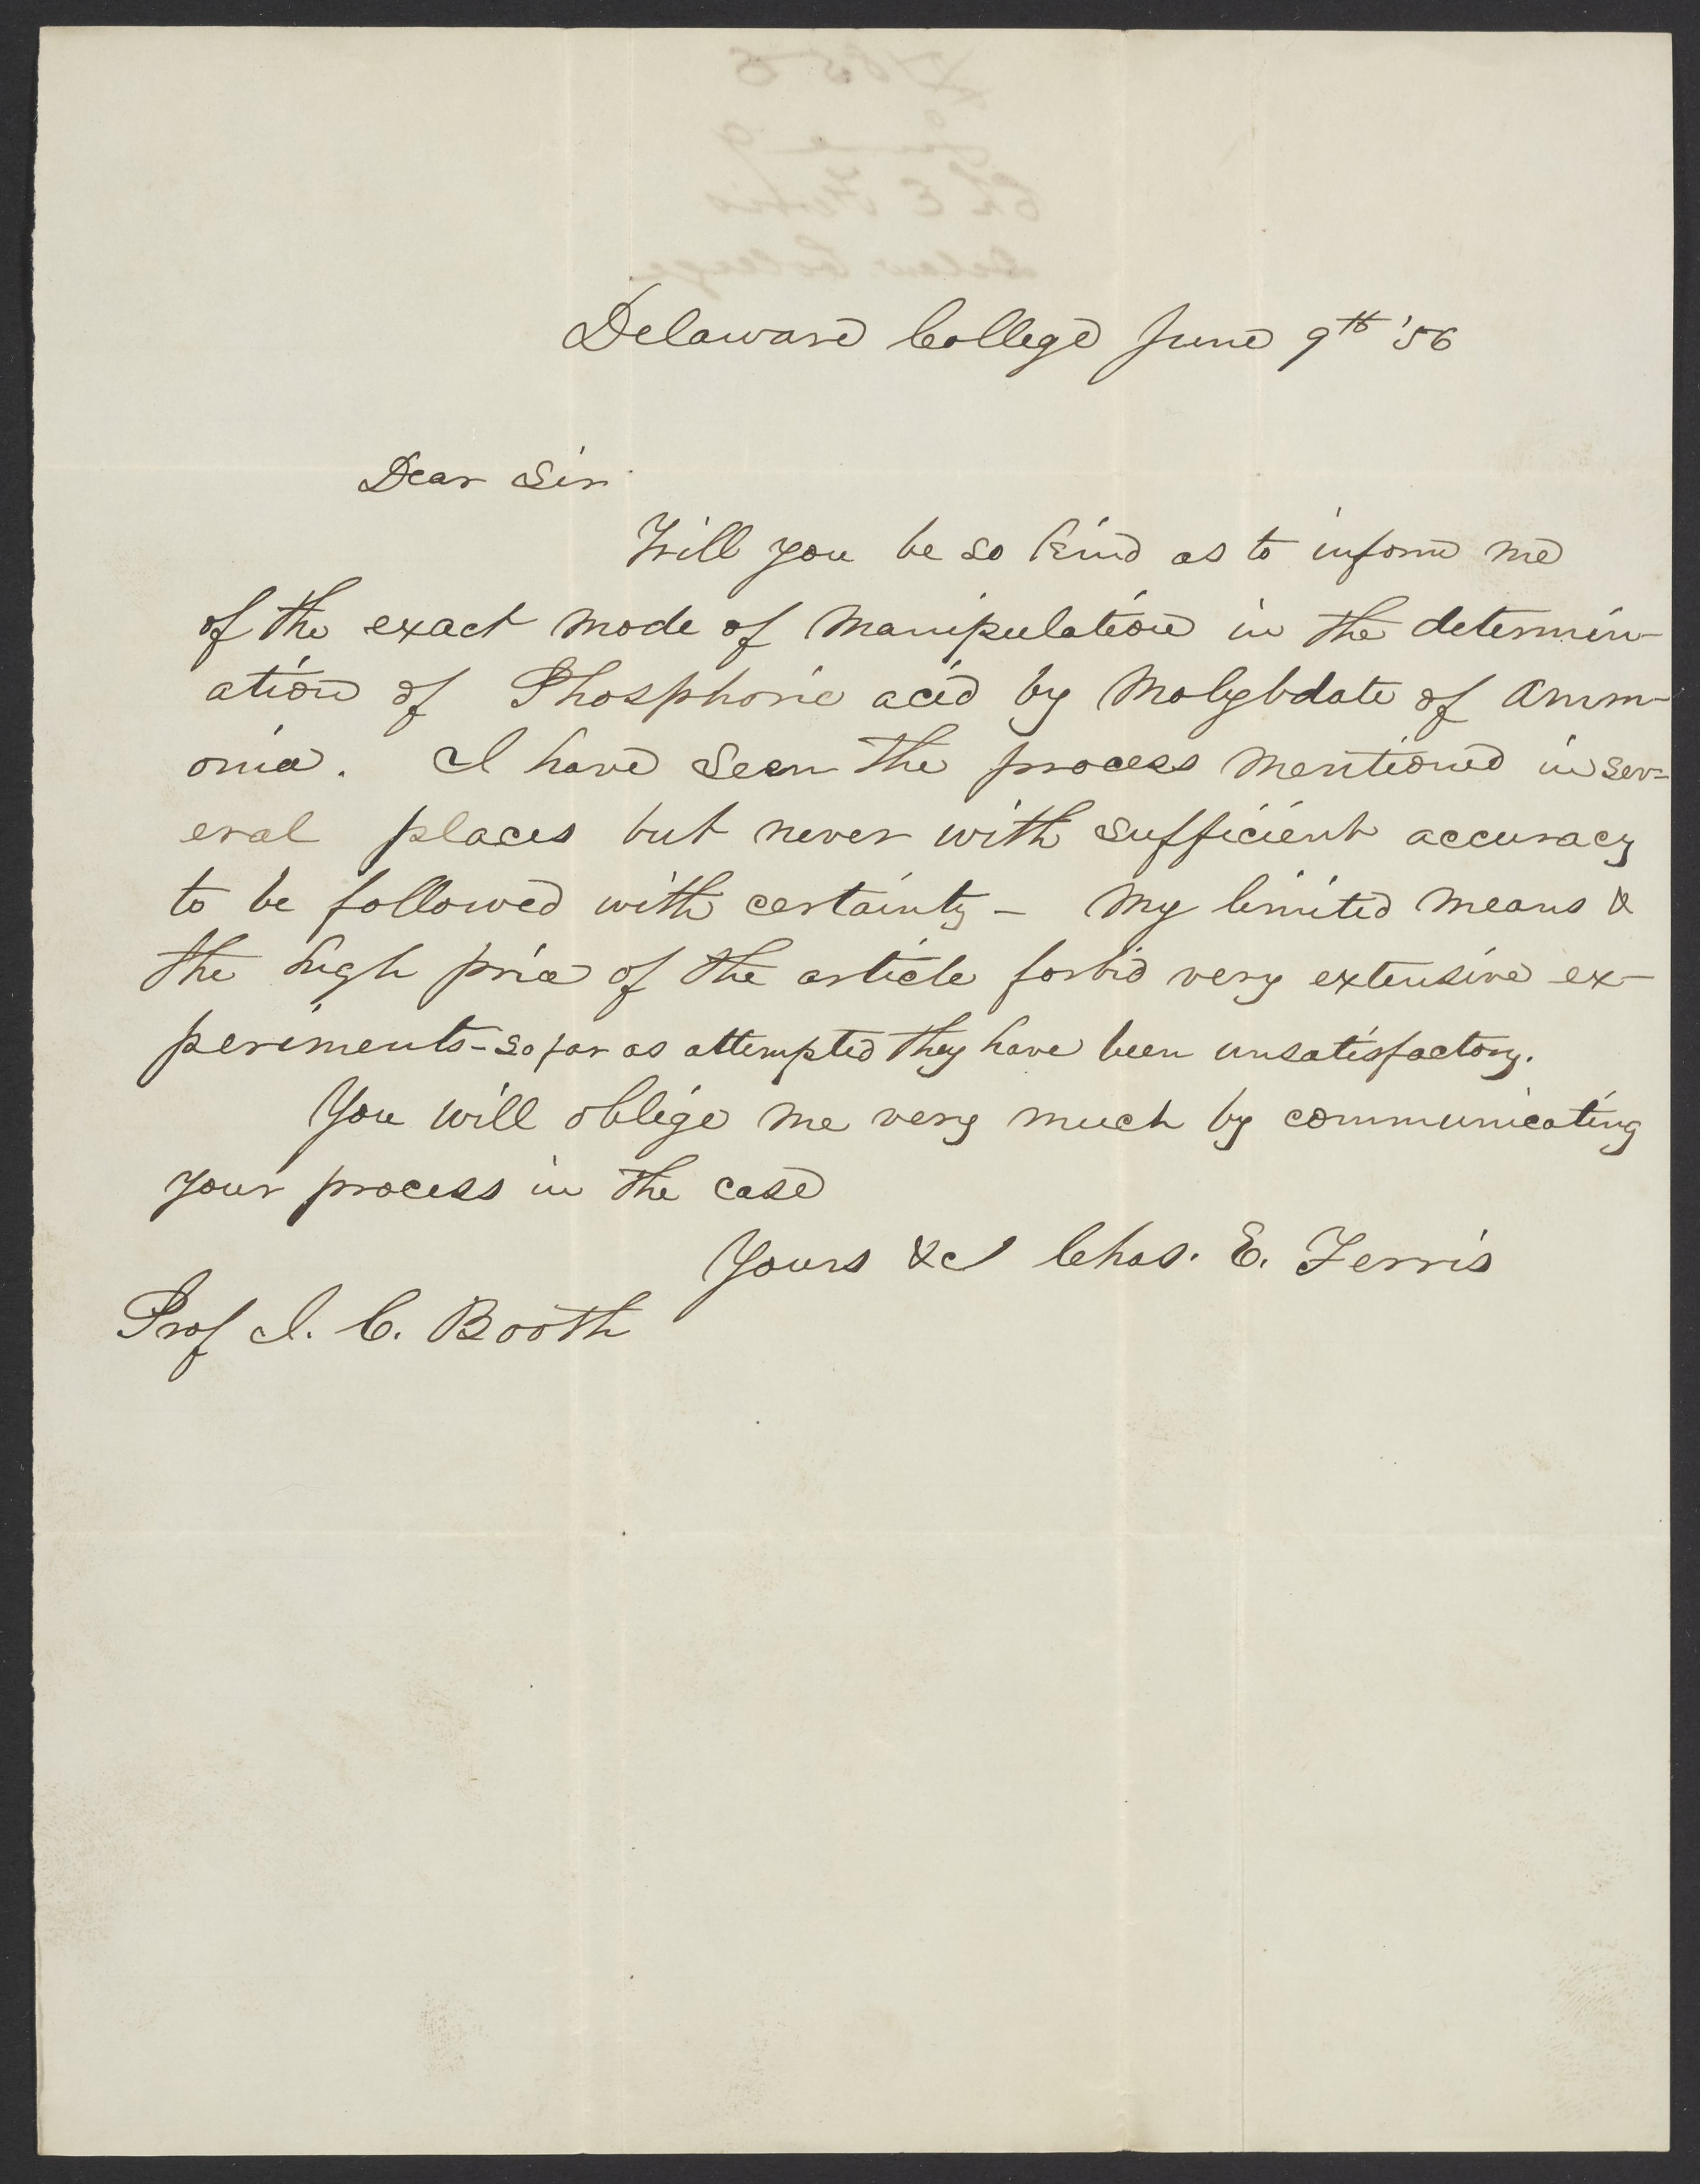 Delaware College June 9th '56
Dear Sir
Will you be so kind as to inform me
of the exact mode of manipulation in the determin-
ation of Phosphoric acid by Molybdate of Amm-
onia. I have seen the process mentioned in sev=
eral places but never with sufficient accuracy
to be followed with certainty - My limited means &
the high price of the article forbid very extensive ex-
periments - so far as attempted they have been unsatisfactory.
You will oblige me very much by communicating
your process in the case
Yours &c Chas. E. Ferris
Prof J. C. Booth